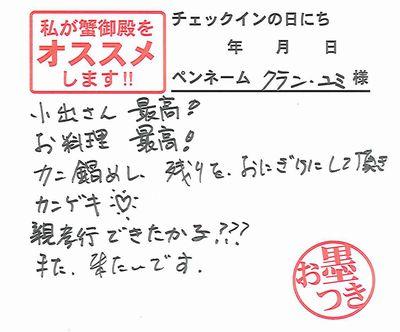 私が蟹御殿を
オススメ
します!!
チェックインの日にち
年 月 日
ペンネーム クラン・ユミ 様
小出さん 最高!
お料理 最高!
カニ鍋めし、残りを、おにぎりにして頂き
カンゲキ♡
親孝行できたかな???
また、来たいです.
お墨つき